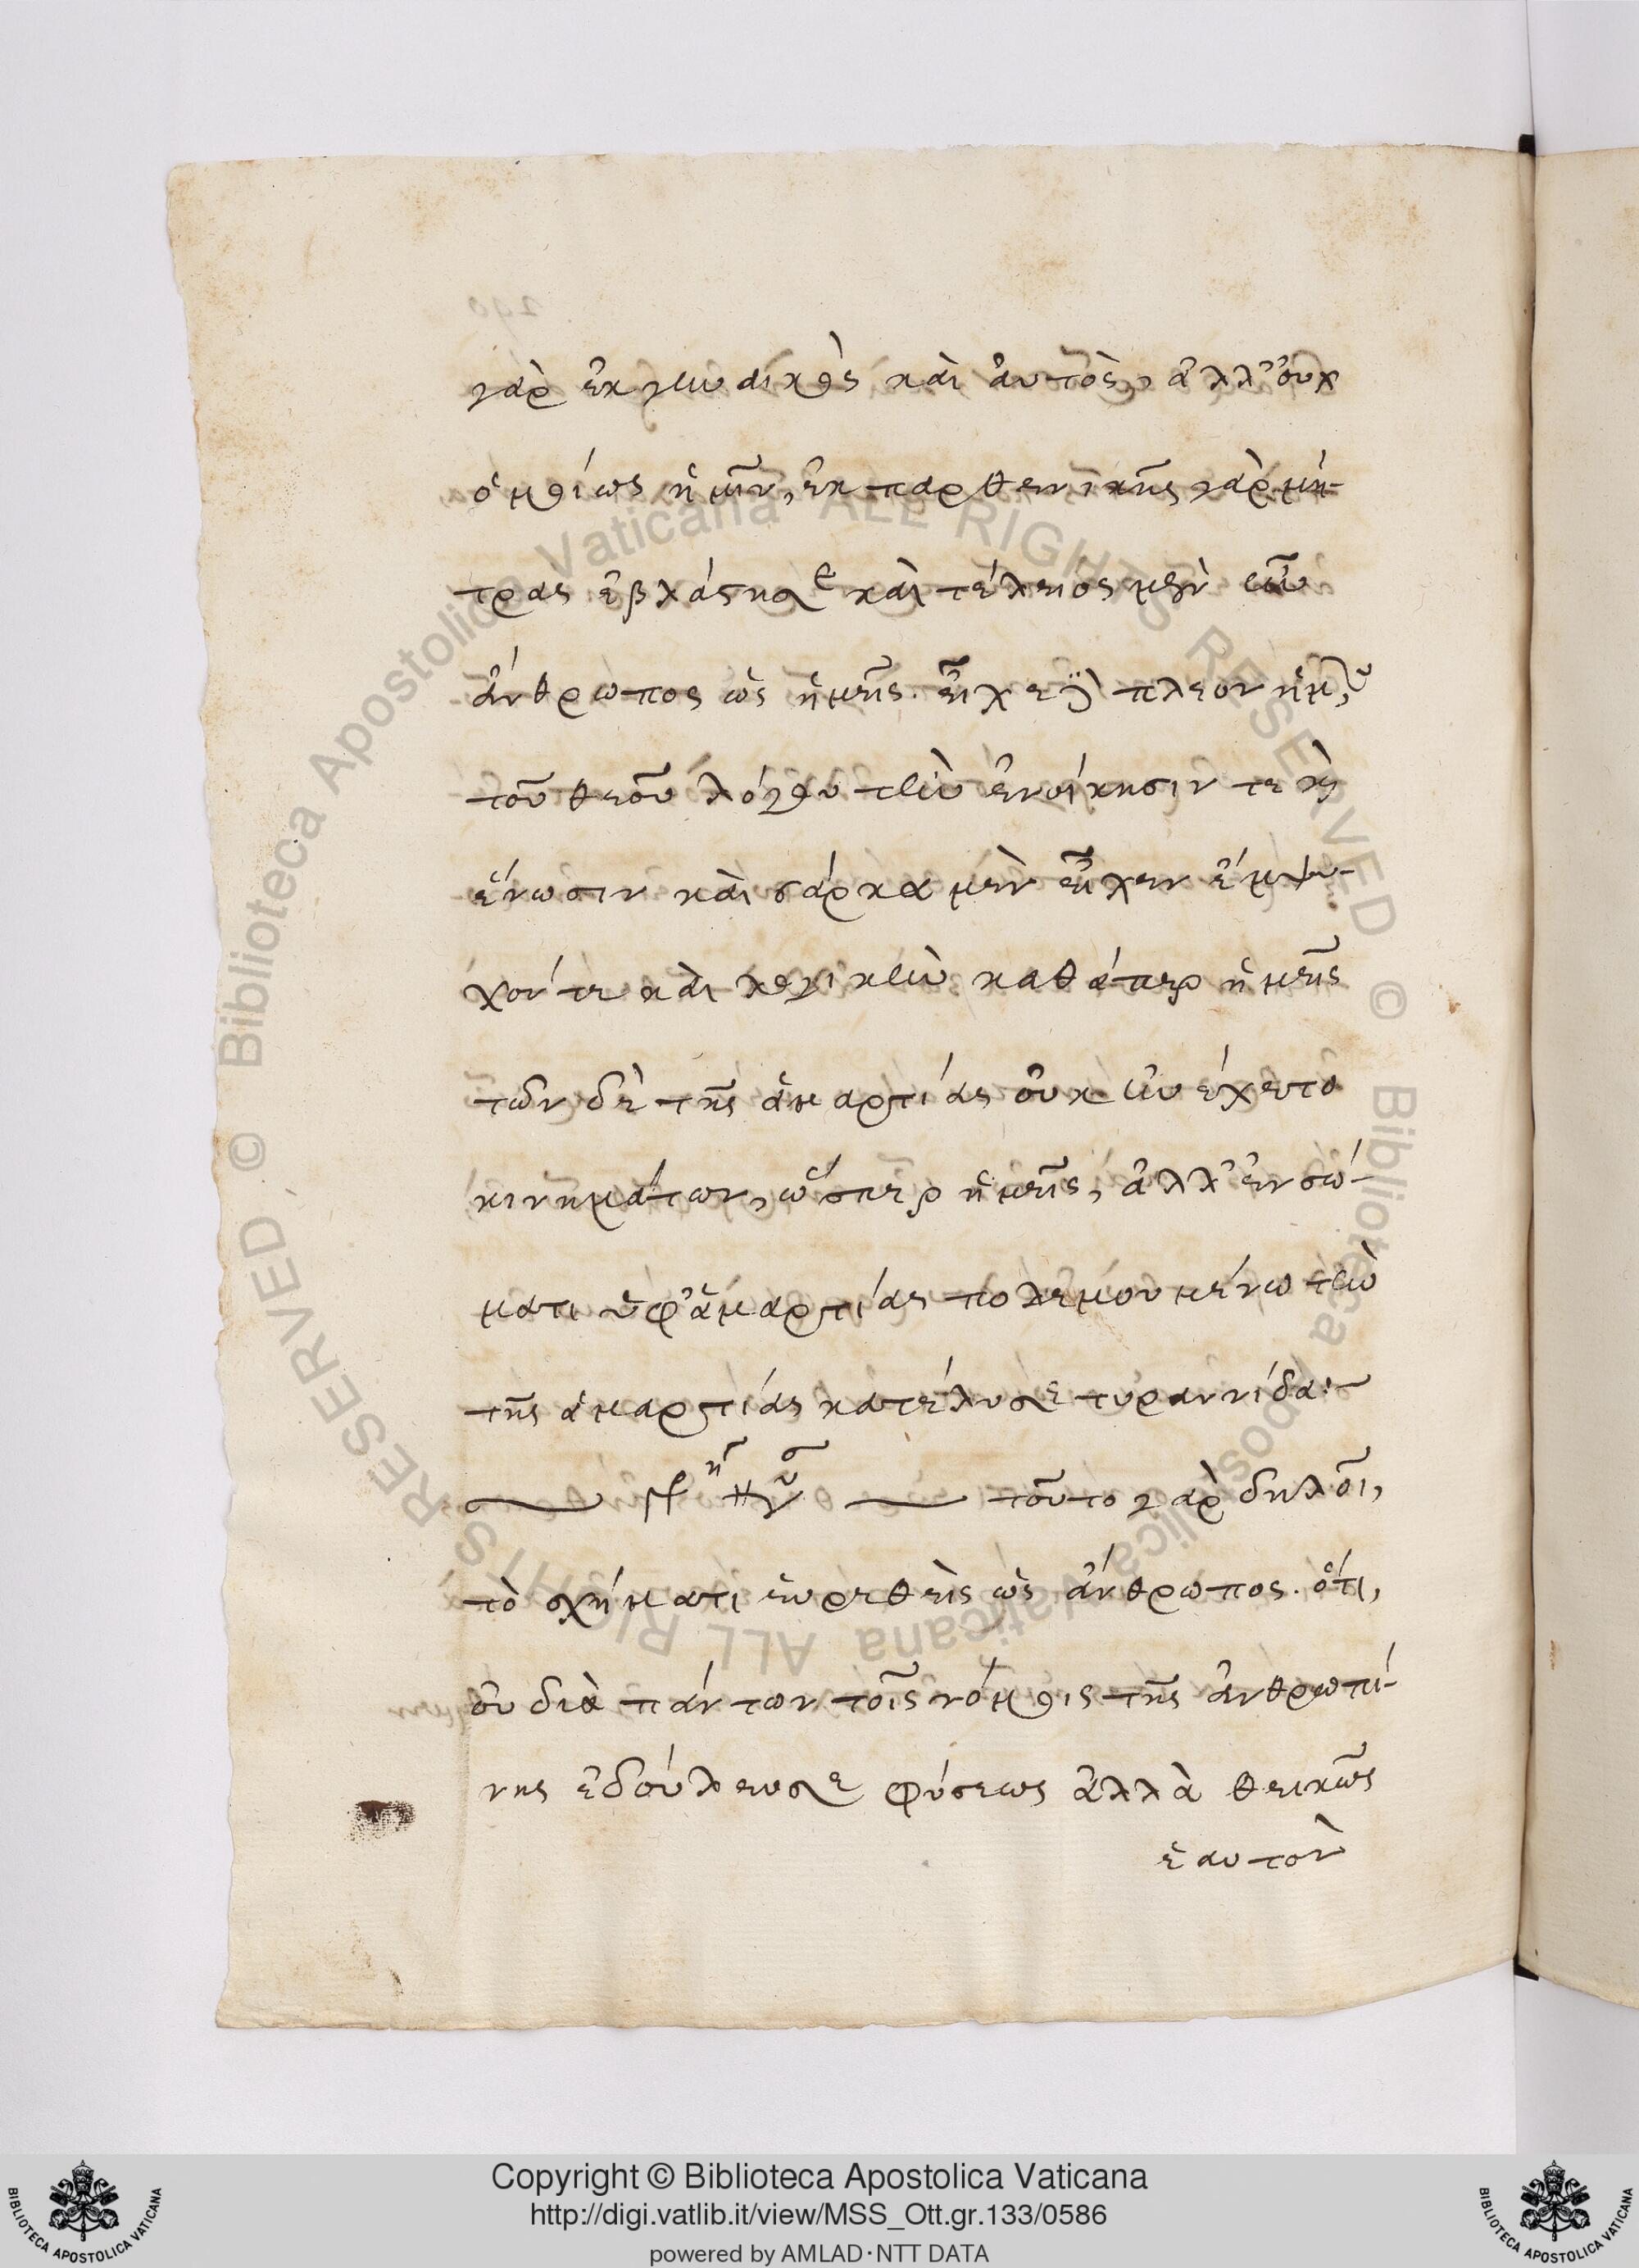 γὰρ ἐκ γυναικὸς καὶ ἀυτὸς, ἀλλ' ὀυχ
ὁμοίως ἡμῖν, ἐκ παρθενικῆς γὰρ μή-
τρας ἐβλάστησε καὶ τέλειος μὲν ἦν
ἄνθρωπος ὡς ἡμεῖς. εἶχε δὲ πλεον ἡμῶν
τοῦ θεοῦ λόγου τὴν ἐνοίκησιν τε κὴ
ἕνωσιν καὶ σάρκα μὲν εἶχεν ἔμψυ-
χόν τε καὶ λογικὴν καθάπερ ἡμεῖς
τῶν δὲ τῆς ἁμαρτίας ὀυκ ἠνείχετο
κινημάτων, ὥσπερ ἡμεῖς, ἀλλ' ἐν σώ-
ματι ὑφ' ἁμαρτίας πολεμουμένω τὴν
τῆς ἁμαρτίας κατέλυσε τυραννίδα:
τοῦτο γὰρ δηλοῖ,
τὸ σχήματι ἑυρεθεὶς ὡς ἄνθρωπος. ὅτι,
ὀυ διὰ πάντων τοῖς νόμοις τῆς ἀνθρωπί-
νης ἐδούλευσε φύσεως ἀλλὰ θεικῶς
ἑαυτὸν
Copyright © Biblioteca Apostolica Vaticana
http://digi.vatlib.it/view/MSS_Ott.gr.133/0586
powered by AMLAD·NTT DATA
BIBLIOTECA APOSTOLICA VATICANA
BIBLIOTECA APOSTOLICA VATICANA
© Biblioteca Apostolica Vaticana ALL RIGHTS RESERVED
© Biblioteca Apostolica Vaticana ALL RIGHTS RESERVED